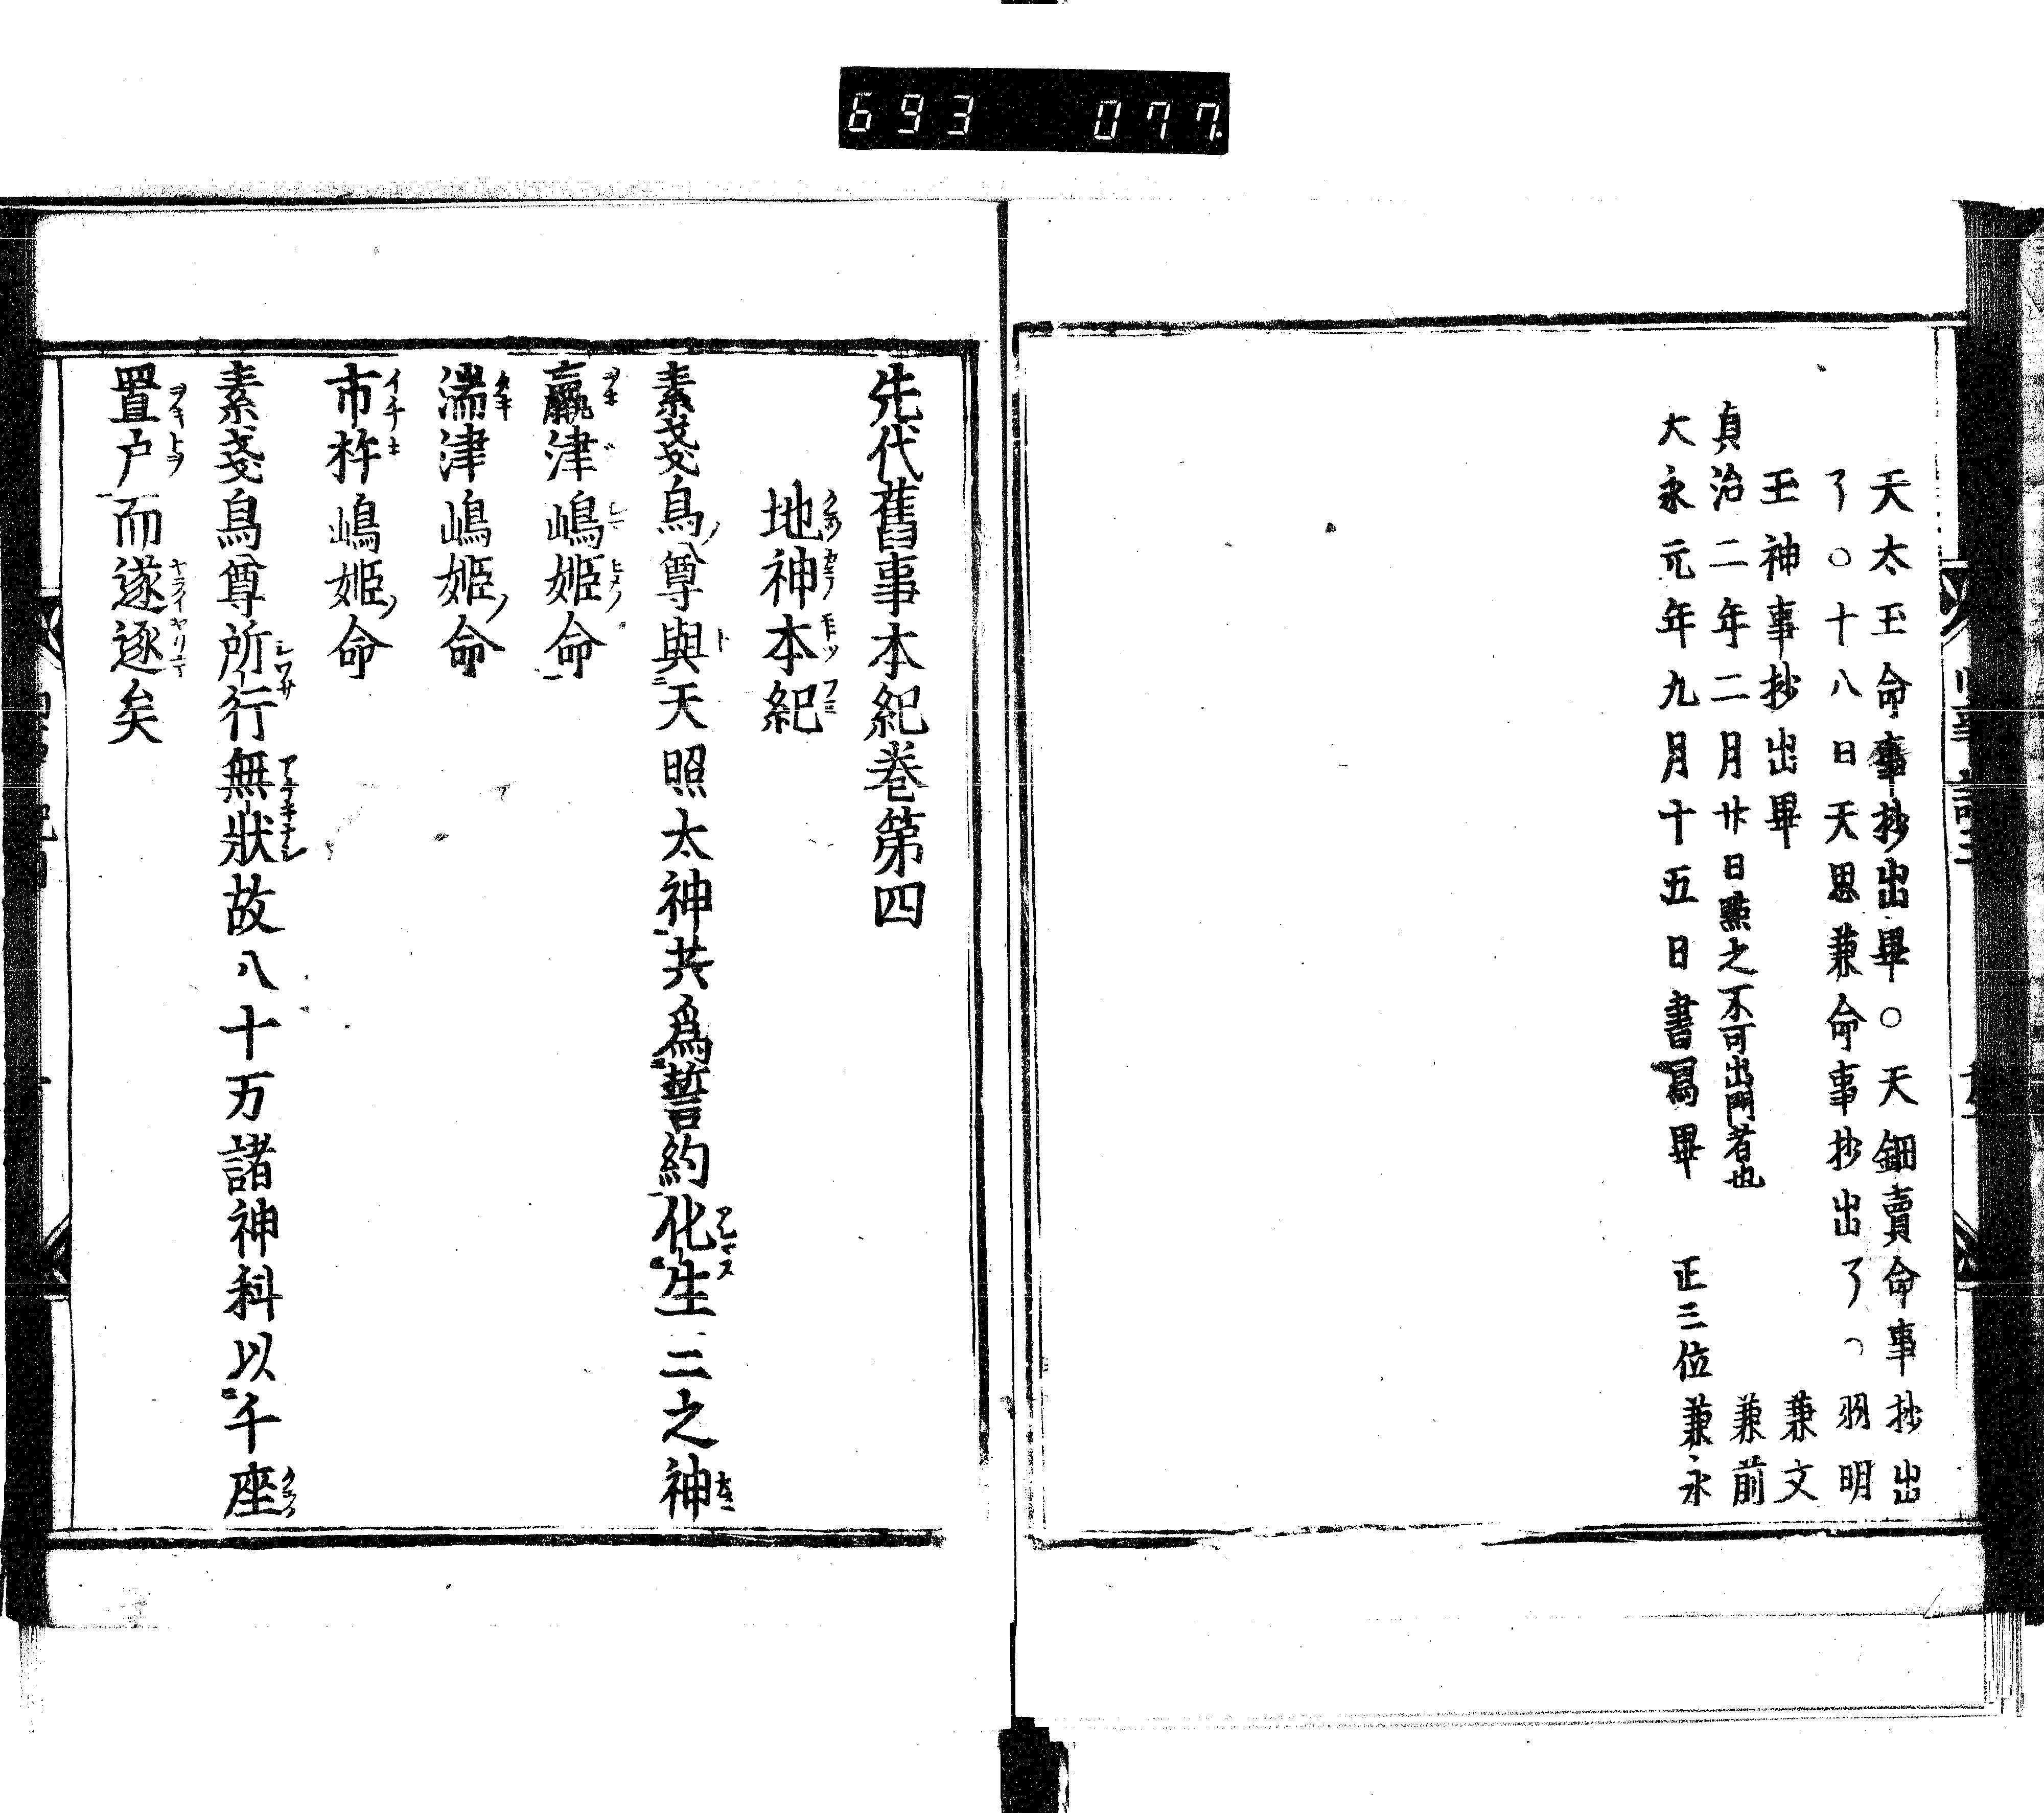 693 077.
天太玉命事抄出畢○天鈿賣命事抄出
了○十八日天思兼命事抄出了○羽明
玉神事抄出畢 兼文
貞治二年二月廿日點之不可出門者也 兼前
大永元年九月十五日書寫畢 正三位兼永
先代舊事本紀巻第四
地神本紀
素戔烏尊與天照太神共爲誓約化生三之神
瀛津嶋姫命
湍津嶋姫命
市杵嶋姫命
素戔烏尊所行無狀故八十万諸神科以千座
置戸而遂逐矣